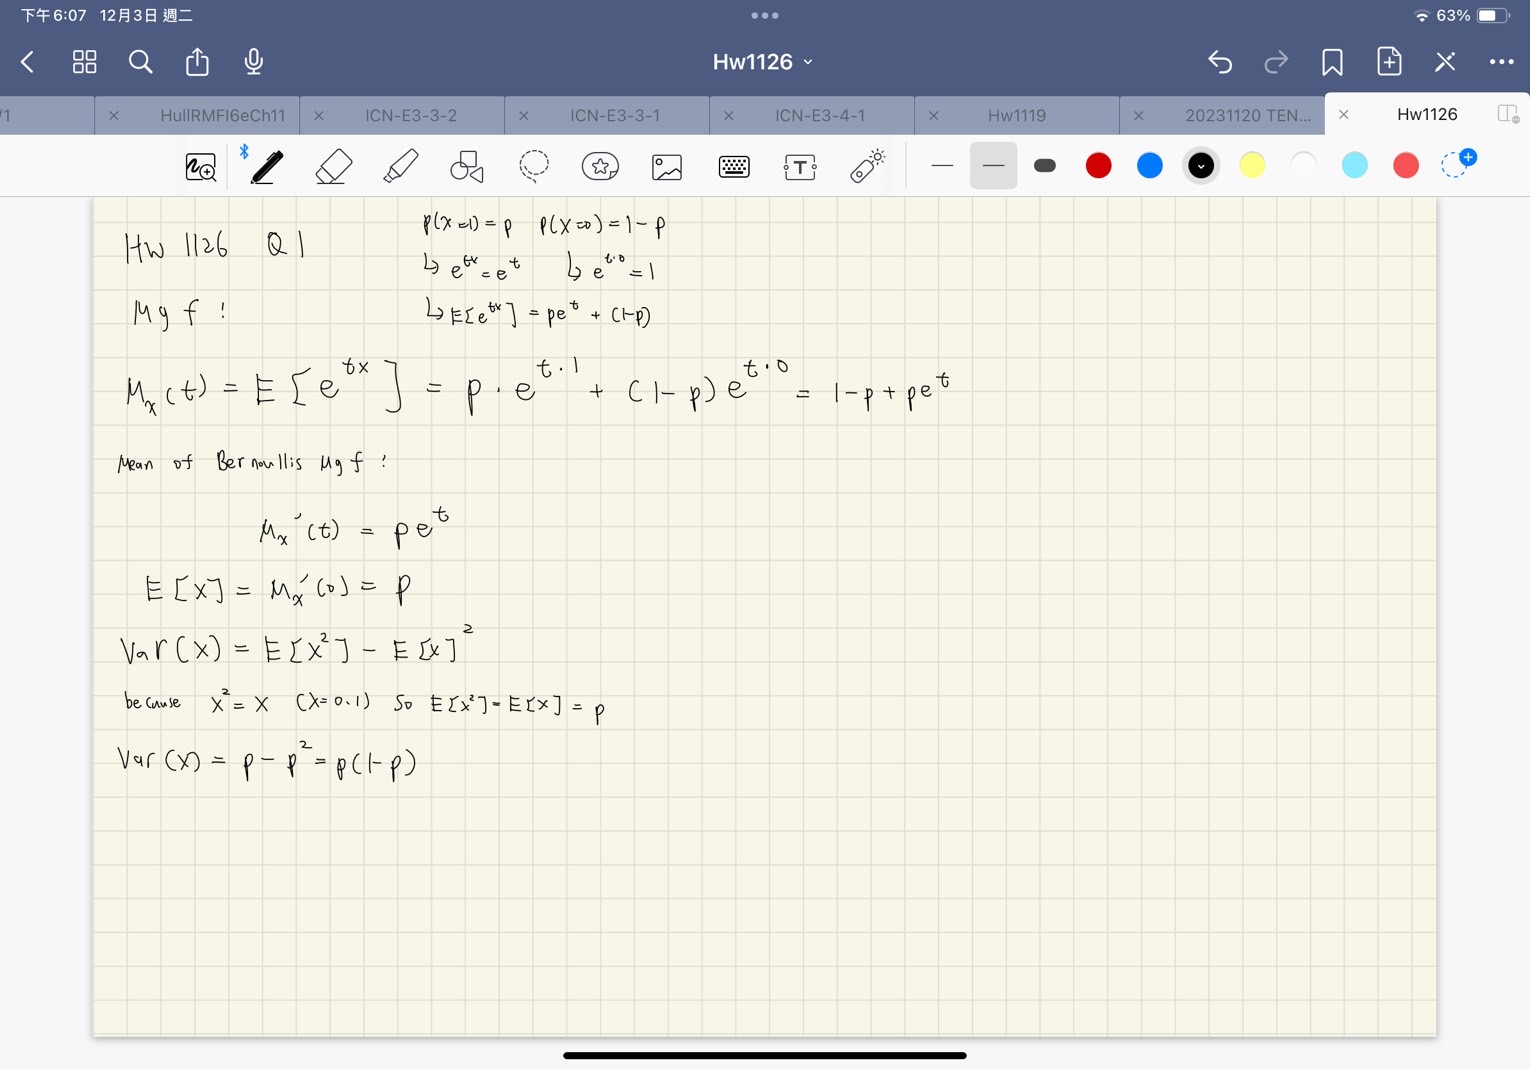 下午6:07 12月3日 週二
63%
Hw1126
/1
HullRMFI6eCh11
ICN-E3-3-2
ICN-E3-3-1
ICN-E3-4-1
Hw1119
20231120 TEN...
Hw1126
P(X=1) = p P(X=0) = 1-p
Hw 1126 Q1
↳ e^{tx} = e^t ↳ e^{t·0} = 1
Mgf :
↳ E[e^{tx}] = pe^t + (1-p)
M_x(t) = E[e^{tx}] = p·e^{t·1} + (1-p)e^{t·0} = 1-p+pe^t
Mean of Bernoullis Mgf :
M_x'(t) = pe^t
E[X] = M_x'(0) = p
Var(X) = E[X²] - E[X]²
because X² = X (X=0.1) So E[X²] = E[X] = p
Var(X) = p - p² = p(1-p)